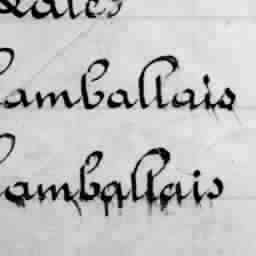 amballais
amballais